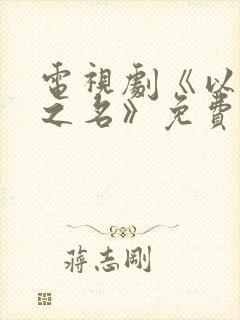 電視劇《以
之名》免費
蔣志剛